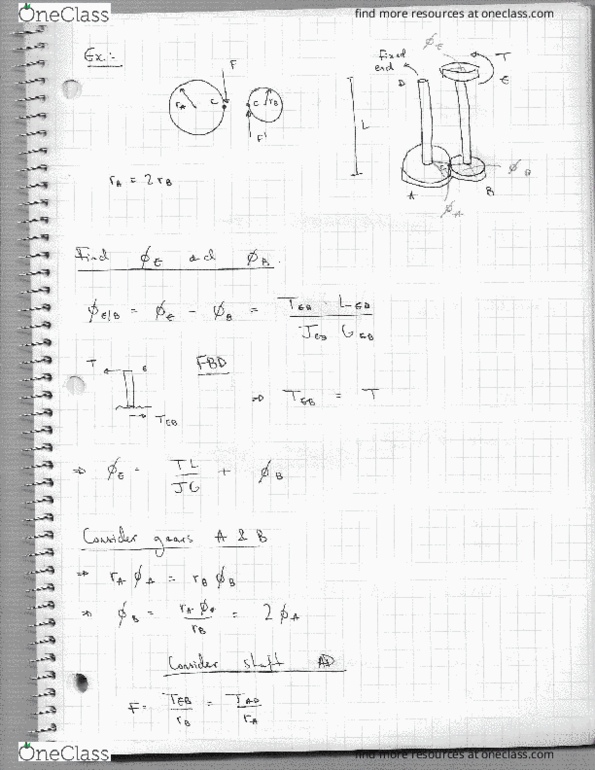 OneClass
find more resources at oneclass.com
Ex:-
F
rA
C
C
rB
F'
fixed
end
D
φE
T
E
L
φB
B
A
φA
rA = 2 rB
Find φE and φB.
φE/B = φE - φB = TEB · LEB / JEB GEB
T
E
FBD
TEB
⇒ TEB = T
⇒ φE = TL / JG + φB
Consider gears A & B
⇒ rA φA = rB φB
⇒ φB = rA φA / rB = 2 φA
Consider shaft AD
F = TEB / rB = TAD / rA
OneClass
find more resources at oneclass.com